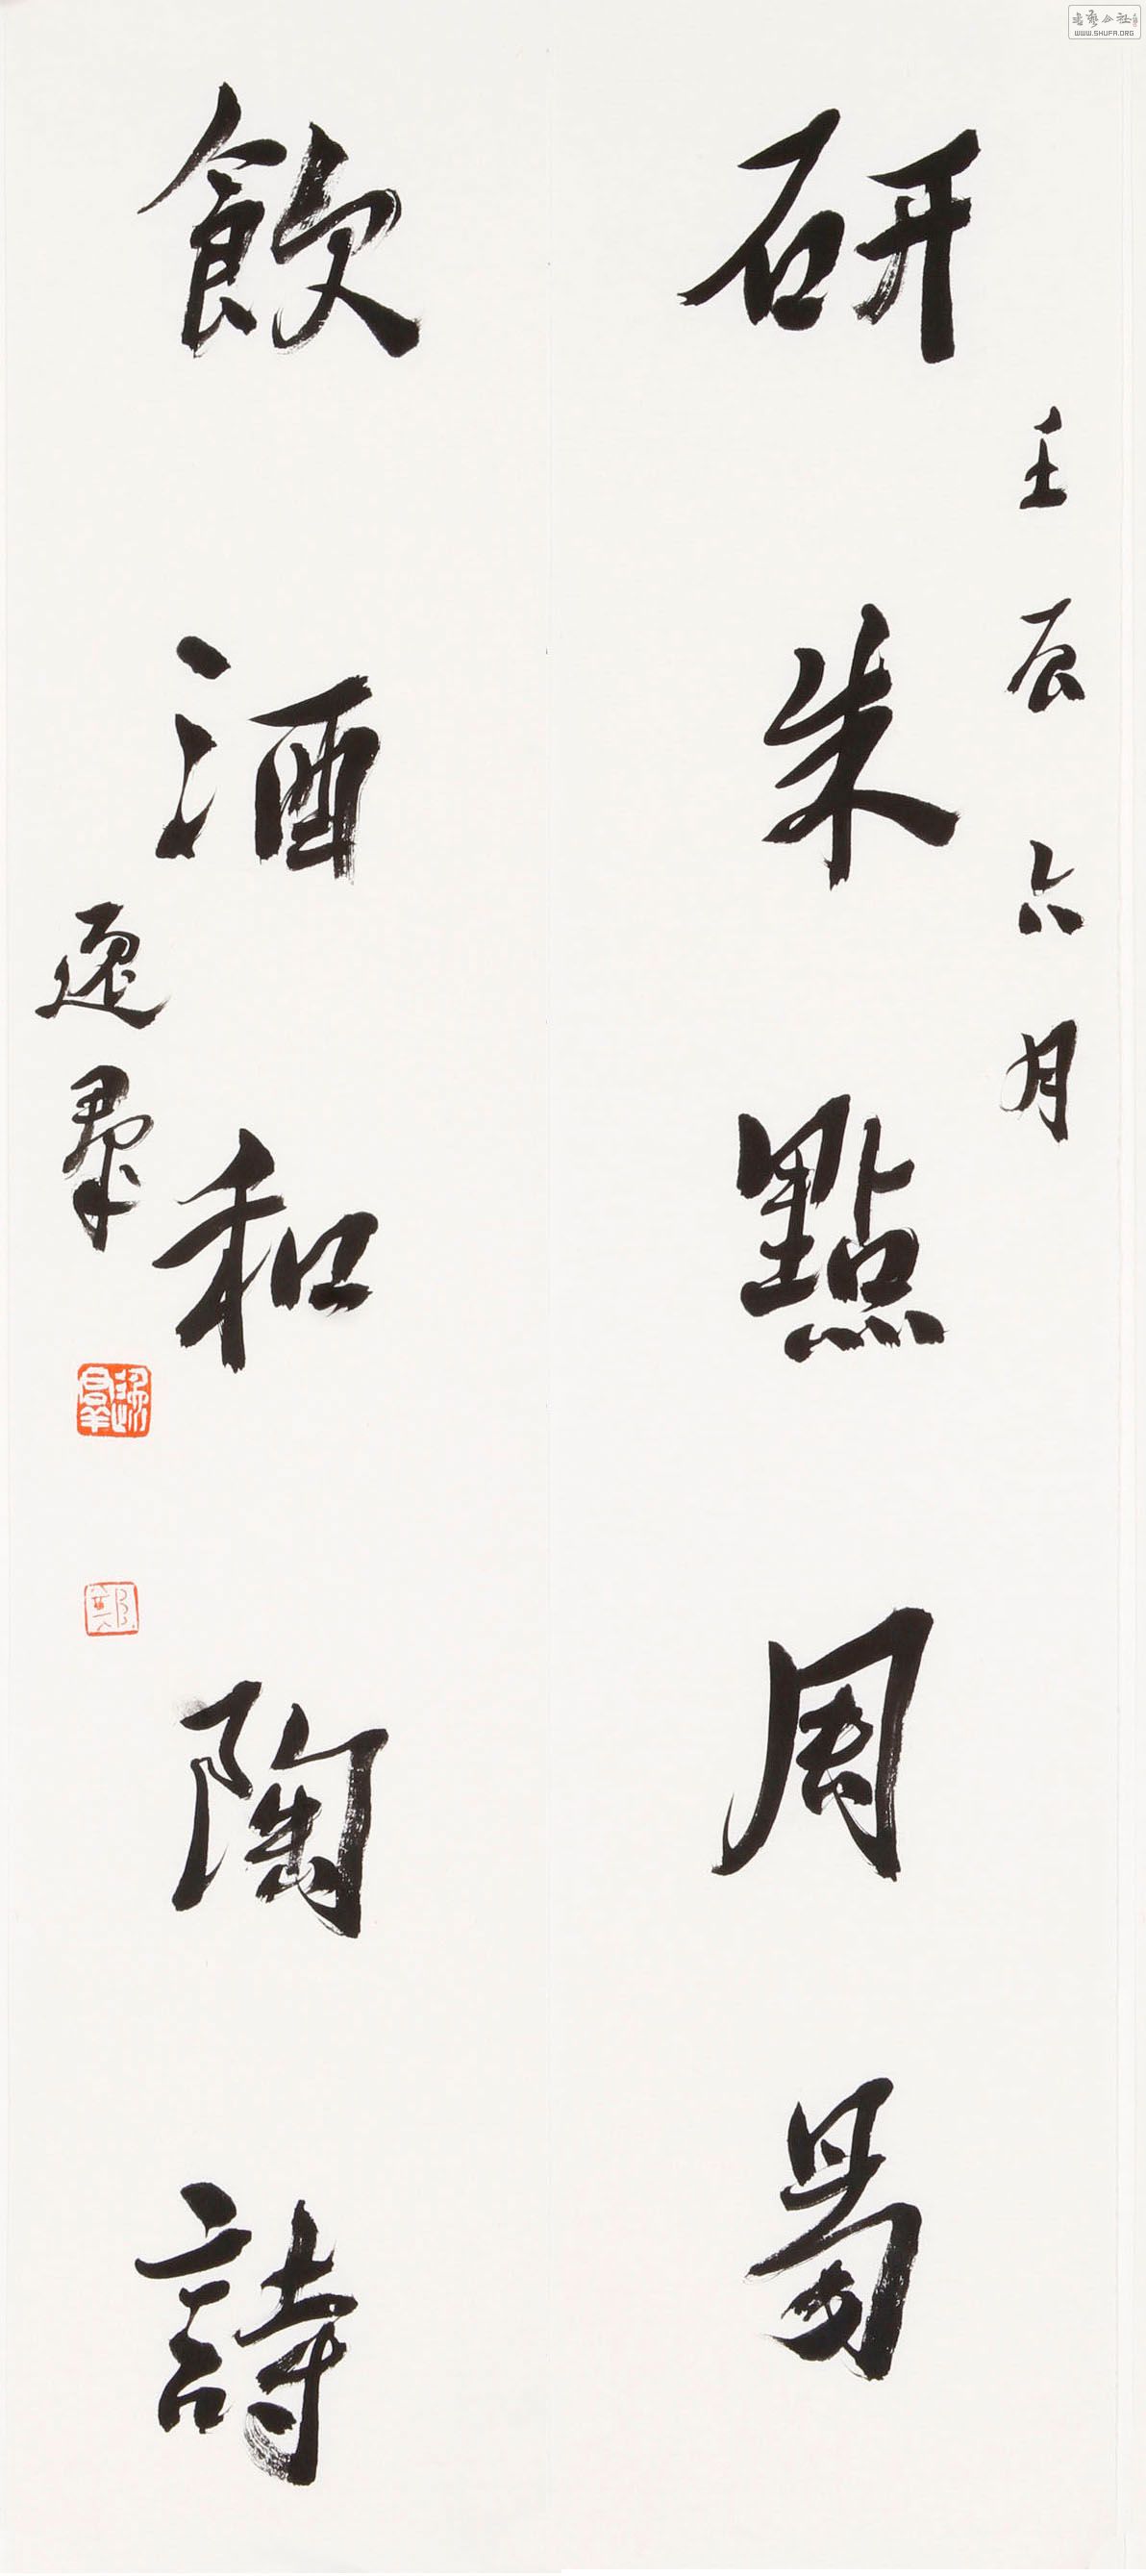 壬辰六月
研朱點周易
飲酒和陶詩
逸羣
逸羣
鄭
書藝公社
WWW.SHUFA.ORG